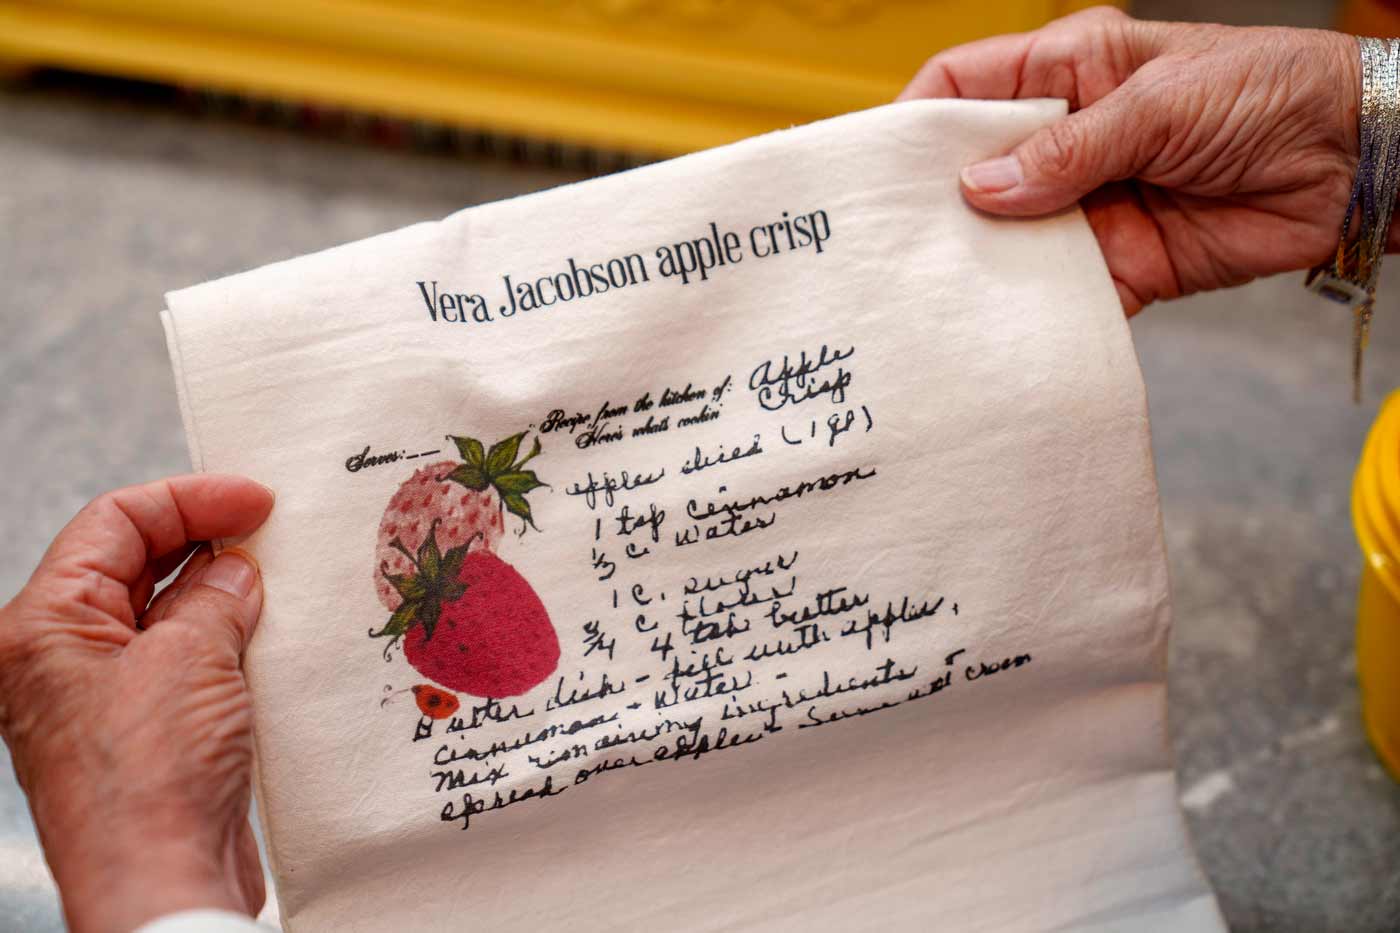 Vera Jacobson apple crisp
Serves:__
Recipe from the kitchen of: Apple
Here's whats cookin' Crisp
apples sliced (1 qt)
1 tsp cinnamon
⅓ c. water
1 c. sugar
¾ c flour
4 tbs butter
Butter dish - fill with apples,
cinnamon + water. -
Mix remaining ingredients
spread over apples - Serve with cream